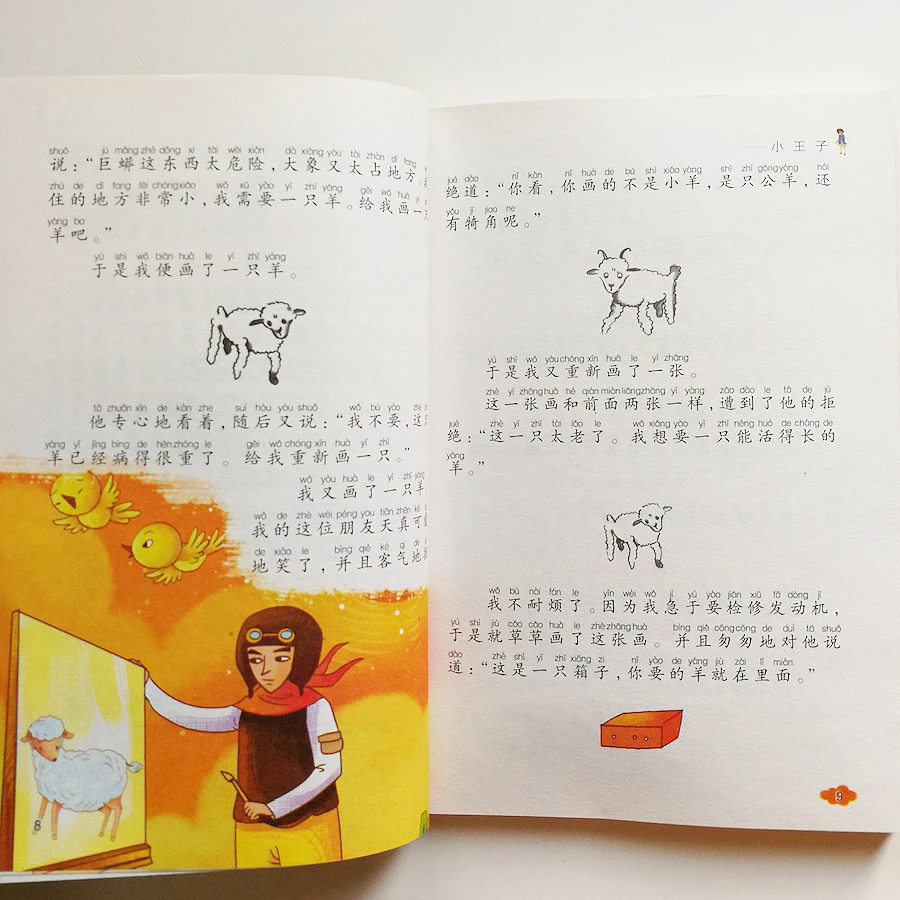 shuō jù mǎng zhè dōng xi tài wēi xiǎn dà xiàng yòu tài zhàn dì fang
说：“巨蟒这东西太危险，大象又太占地方。
zhù de dì fang fēi cháng xiǎo wǒ xū yào yì zhī yáng gěi wǒ huà yì
住的地方非常小，我需要一只羊。给我画一
yáng ba
羊吧。”
yú shì wǒ biàn huà le yì zhī yáng
于是我便画了一只羊。
tā zhuān xīn de kàn zhe suí hòu yòu shuō wǒ bú yào
他专心地看着，随后又说：“我不要，这
yáng yǐ jīng bìng de hěn zhòng le gěi wǒ chóng xīn huà yì zhī
羊已经病得很重了。给我重新画一只。”
wǒ yòu huà le yì zhī yáng
我又画了一只羊
wǒ de zhè wèi péng you tiān zhēn kě
我的这位朋友天真可
de xiào le bìng qiě kè qi de
地笑了，并且客气地
8
小王子
jué dào nǐ kàn nǐ huà de bú shì xiǎo yáng shì zhī gōng yáng hái
绝道：“你看，你画的不是小羊，是只公羊，还
yǒu jī jiao ne
有犄角呢。”
yú shì wǒ yòu chóng xīn huà le yì zhāng
于是我又重新画了一张。
zhè yì zhāng huà hé qián miàn liǎng zhāng yí yàng zāo dào le tā de jù
这一张画和前面两张一样，遭到了他的拒
jué zhè yì zhī tài lǎo le wǒ xiǎng yào yì zhī néng huó de cháng de
绝：“这一只太老了。我想要一只能活得长的
yáng
羊。”
wǒ bú nài fán le yīn wèi wǒ jí yú yào jiǎn xiū fā dòng jī
我不耐烦了。因为我急于要检修发动机，
yú shì jiù cǎo cǎo huà le zhè zhāng huà bìng qiě cōng cōng de duì tā shuō
于是就草草画了这张画。并且匆匆地对他说
dào zhè shì yì zhī xiāng zi nǐ yào de yáng jiù zài lǐ miàn
道：“这是一只箱子，你要的羊就在里面。”
9